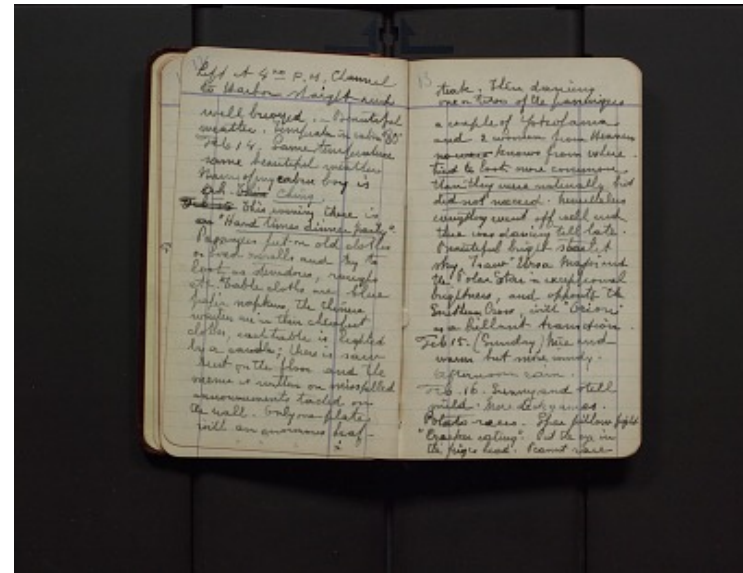 Left at 4 00 P.M. Channel
to Harbor straight and
well buoyed. - Beautiful
weather. Temperature in cabin 80°
Feb 14. Same temperature
same beautiful weather
Name of my cabin boy is
Ching.
This evening there is
an "Hard times dinner party".
Passengers put on old clothes
or even overalls and try to
look as stevedores, roughs
etc. Table cloths are blue
paper napkins, the Chinese
waiters are in their cheapest
clothes, each table is lighted
by a candle; there is saw
dust on the floor and the
menu is written on misspelled
announcements tacked on
the wall. Only one plate
with an enormous beef-
13
steak. Then dancing
one or two of the passengers
a couple of
and 2 women from Heaven
no knows from where.
tried to look more common
than they were naturally but
did not succeed. Nevertheless
everything went off well and
there was dancing till late.
Beautiful bright starlit
sky. I saw "Ursa Major" and
the Polar Star in exceptional
brightness, and opposite the
Southern Cross, with "Orion"
as a brilliant transition.
Feb 15. (Sunday) Nice and
warm but more windy.
afternoon rain.
Feb. 16. Sunny and still
mild. More deck games.
Potato races. Spar pillow fight
"Cracker eating". Put the eye in
the pigs head. Peanut race